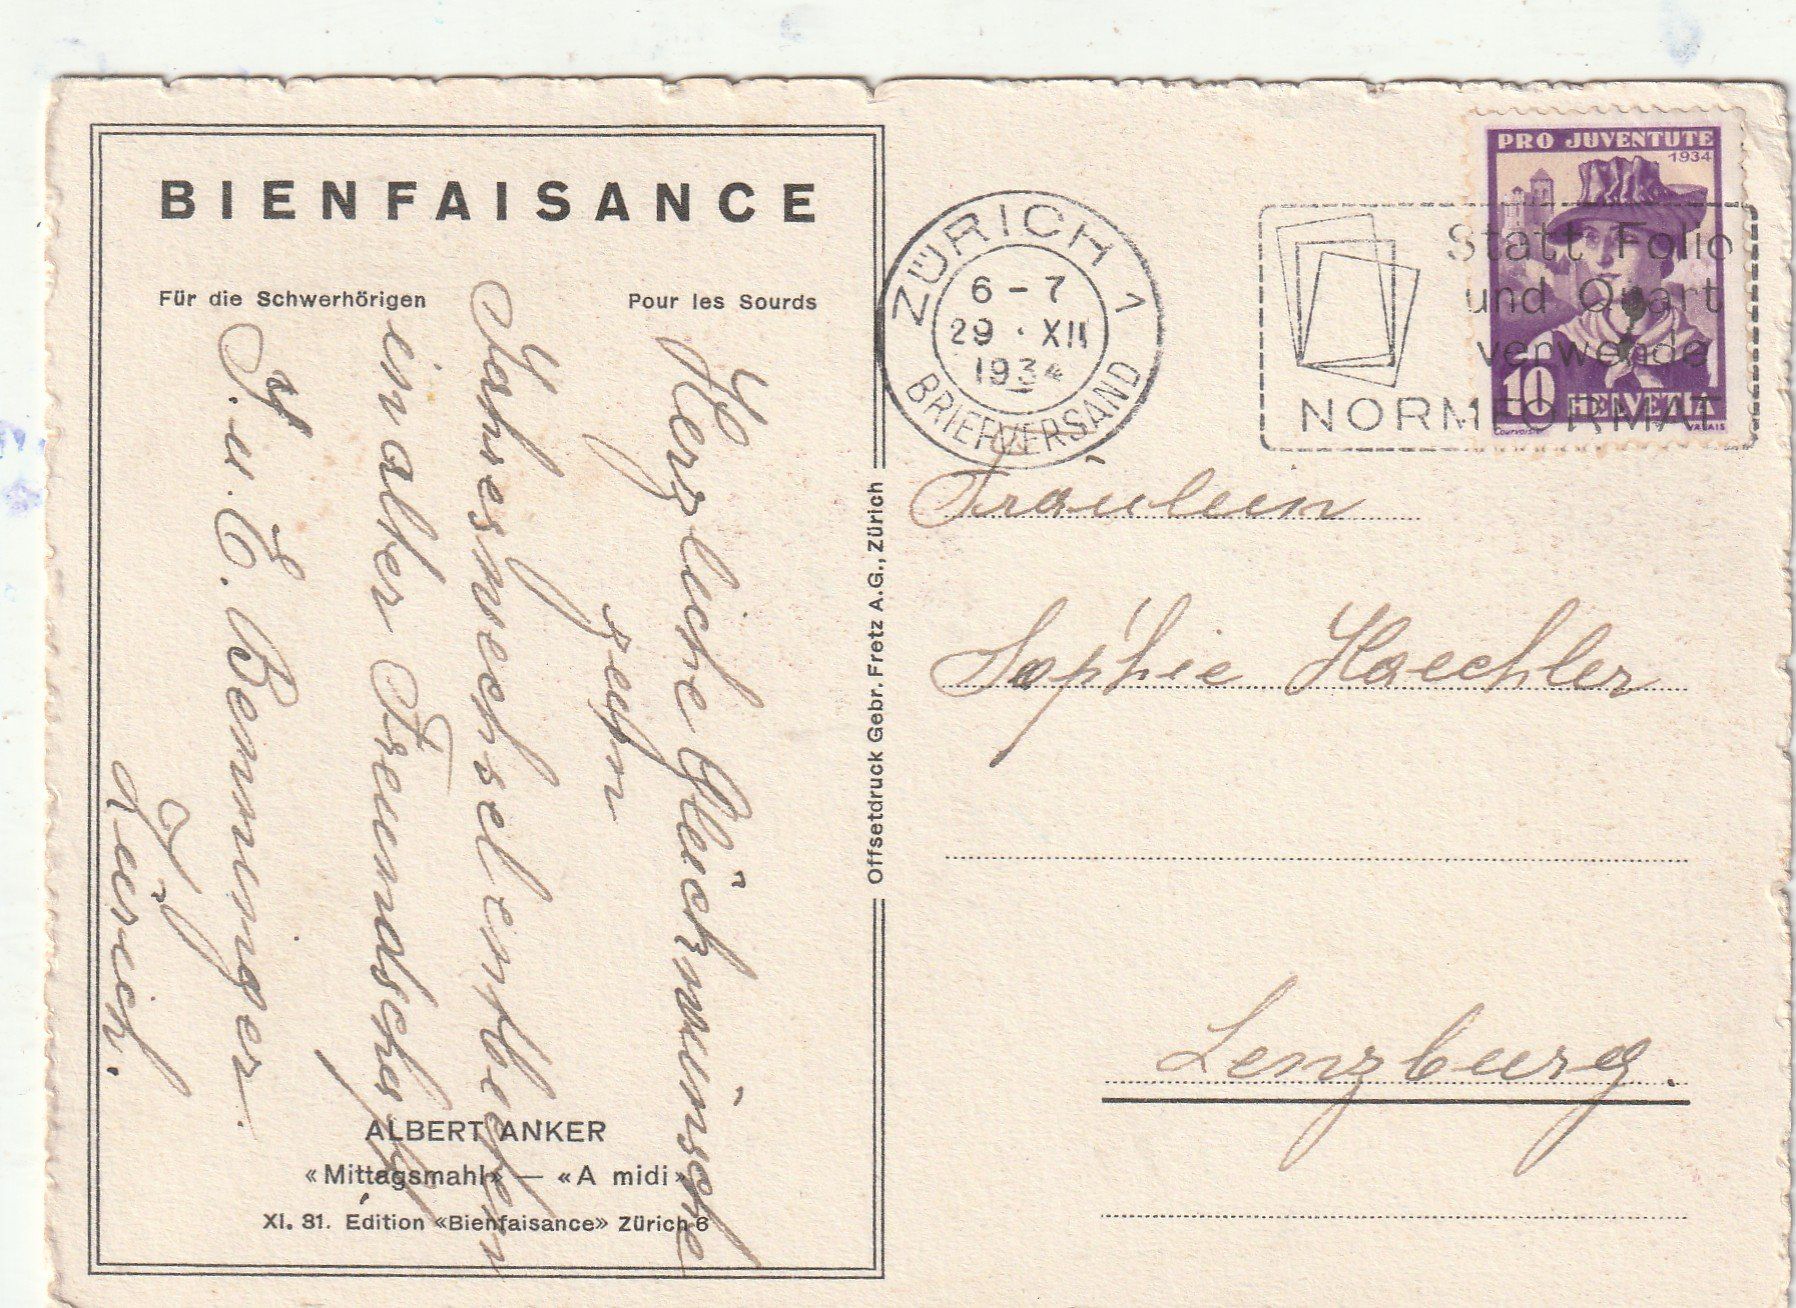 BIENFAISANCE
Für die Schwerhörigen
Pour les Sourds
Herzliche Glückwünsche
zum
Jahreswechsel entbieten
in alter Freundschaft
J. u. E. Benninger
Zürich.
ALBERT ANKER
«Mittagsmahl» — «A midi»
XI. 31. Edition «Bienfaisance» Zürich 6
Offsetdruck Gebr. Fretz A.G., Zürich
ZÜRICH 1
6-7
29·XII
1934
BRIEFVERSAND
Statt Folio
und Quart
verwende
NORMFORMAT
PRO JUVENTUTE
1934
10 HELVETIA
Courvoisier
VALAIS
Fräulein
Sophie Haechler
Lenzburg.